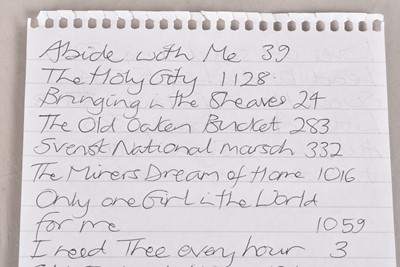 Abide with Me 39
The Holy City 1128.
Bringing in the Sheaves 24
The Old Oaken Bucket 283
Svensk National marsch 332
The Miners Dream of Home 1016
Only one Girl in the World
for me 1059
I need Thee every hour 3